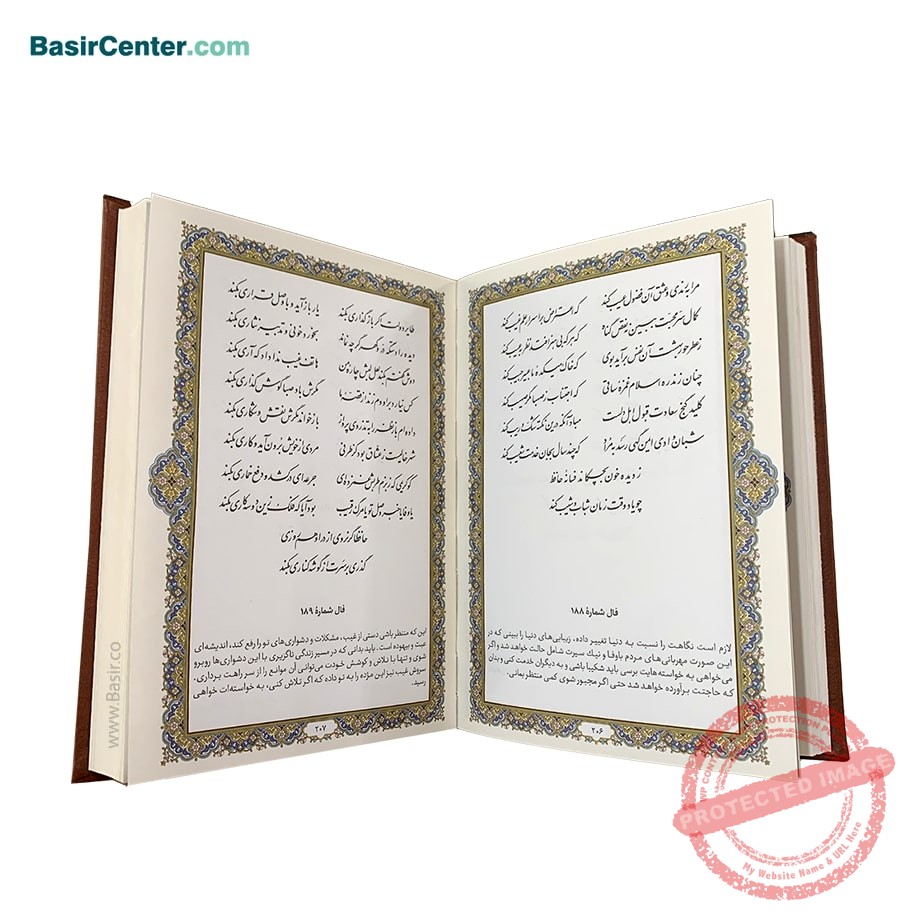 BasirCenter.com
مرا به رندی و عشق آن فضول عیب کند
که اعتراض بر اسرار علم غیب کند
کمال سر محبت ببین نه نقص گناه
که هر که بی‌هنر افتد نظر به عیب کند
ز عطر حور بهشت آن نفس برآید بوی
که خاک میکده ما عبیر جیب کند
چنان زند ره اسلام غمزه ساقی
که اجتناب ز صهبا مگر صهیب کند
کلید گنج سعادت قبول اهل دلست
مباد آنکه درین نکته شک و ریب کند
شبان وادی ایمن گهی رسد به مراد
که چند سال بجان خدمت شعیب کند
ز دیده خون بچکاند فسانهٔ حافظ
چو یاد وقت زمان شباب و شیب کند
فال شمارهٔ ۱۸۸
لازم است نگاهت را نسبت به دنیا تغییر داده، زیبایی‌های دنیا را ببینی که در
این صورت مهربانی‌های مردم باوفا و نیک سیرت شامل حالت خواهد شد و اگر
می‌خواهی به خواسته‌هایت برسی باید شکیبا باشی و به دیگران خدمت کنی و بدان
که حاجتت برآورده خواهد شد حتی اگر مجبور شوی کمی منتظر بمانی.
۲۰۶
طایر دولت اگر باز گذاری بکند
یار بازآید و با وصل قراری بکند
دیده را دستگه در و گهر گرچه نماند
بخورد خونی و تدبیر نثاری بکند
دوش گفتم بکند لعل لبش چاره من
هاتف غیب ندا داد که آری بکند
کس نیارد بر او دم زند از قصه ما
مگرش باد صبا گوش گذاری بکند
داده‌ام باز نظر را به تذروی پرواز
بازخواند مگرش نقش و شکاری بکند
شهر خالیست ز عشاق بود کز طرفی
مردی از خویش برون آید و کاری بکند
کو کریمی که ز بزم طربش غمزده‌ای
جرعه‌ای درکشد و دفع خماری بکند
یا وفا یا خبر وصل تو یا مرگ رقیب
بود آیا که فلک زین دو سه کاری بکند
حافظا گر نروی از در او هم روزی
گذری بر سرت از گوشه کناری بکند
فال شمارهٔ ۱۸۹
این که منتظر باشی دستی از غیب، مشکلات و دشواری‌های تو را رفع کند، اندیشه‌ای
عبث و بیهوده است. باید بدانی که در مسیر زندگی ناگزیری با این دشواری‌ها روبرو
شوی و تنها با تلاش و کوشش خودت می‌توانی آن موانع را از سر راهت برداری.
سروش غیب نیز این مژده را به تو داده که اگر تلاش کنی، به خواسته‌ات خواهی
رسید.
۲۰۷
www.Basir.co
PROTECTED IMAGE
My Website Name & URL Here